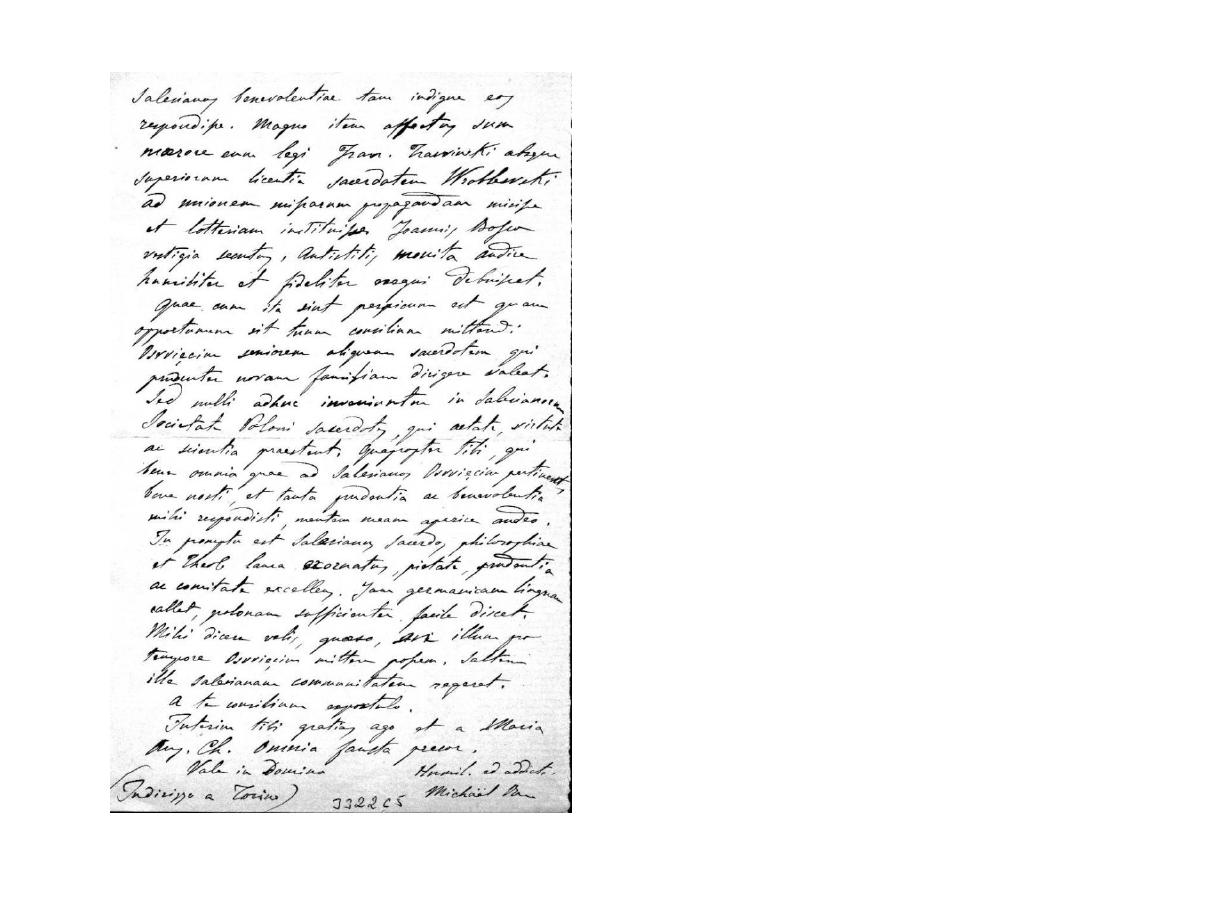 Salesianos benevolentiae tam indigne eos
respondisse. Magno item affectus sum
mœrore cum legi Fran. Trawinski absque
superiorum licentia sacerdotem Wroblewski
ad unionem missarum propagandam misisse
et lotteriam instituisse Joannis Bosco
vestigia secutus, Antistitis monita audire
humiliter et fideliter exequi debuisset.
Quae cum ita sint perspicuum est quam
opportunum sit tuum consilium mittendi
Osvięcim seniorem aliquem sacerdotem qui
prudenter novam familiam dirigere valeat.
Sed nulli adhuc inveniuntur in Salesianorum
Societate Poloni sacerdotes, qui aetate, virtute
ac scientia praestent. Quapropter tibi, qui
bene omnia quae ad Salesianos Osvięcim pertinent
bene nosti, et tanta prudentia ac benevolentia
mihi respondisti, mentem meam aperire audeo.
In promptu est Salesianus sacerdos, philosophiae
et Theol. laurea exornatus, pietate, prudentia
ac comitate excellens. Jam germanicam linguam
callet, polonam sufficienter facile discet.
Mihi dicere velis, quæso, illum pro
tempore Osvięcim mittere possem. Saltem
ille Salesianam communitatem regeret.
A te consilium expostulo.
Interim tibi gratias ago et a Maria
Aux. Ch. Omnia fausta precor.
Vale in Domino
Humil. ed addict.
(Indirizzo a Torino)
3322C5
Michaël Rua